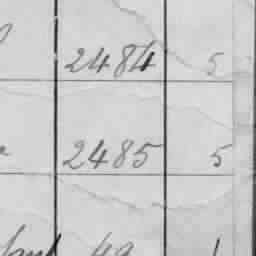 2484 5
2485 5
49 1